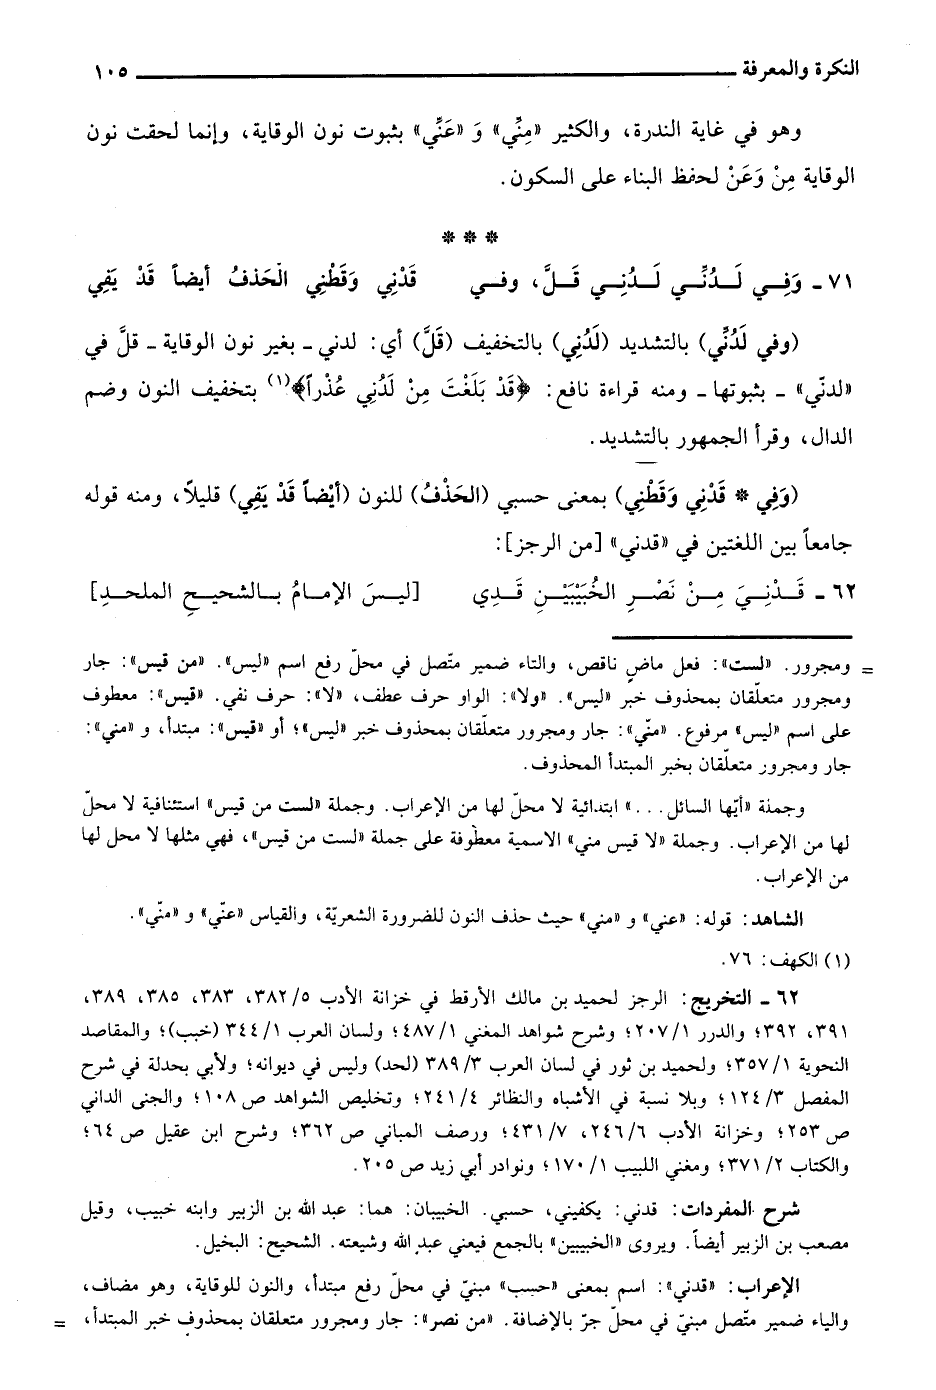 النكرة والمعرفة ١٠٥
وهو في غاية الندرة، والكثير «مِنِّي» وَ «عَنِّي» بثبوت نون الوقاية، وإنما لحقت نون
الوقاية مِنْ وَعَنْ لحفظ البناء على السكون.
* * *
٧١ ـ وَفِي لَدُنِّي لَدُنِي قَلَّ، وفي قَدْنِي وَقَطْنِي الْحَذفُ أيضاً قَدْ يَفِي
(وفي لَدُنِّي) بالتشديد (لَدُنِي) بالتخفيف (قَلَّ) أي: لدني ـ بغير نون الوقاية ـ قلَّ في
«لدنّي» ـ بثبوتها ـ ومنه قراءة نافع: ﴿قَدْ بَلَغْتَ مِنْ لَدُنِي عُذْراً﴾(١) بتخفيف النون وضم
الدال، وقرأ الجمهور بالتشديد.
(وَفِي * قَدْنِي وَقَطْنِي) بمعنى حسبي (الحَذْفُ) للنون (أيْضاً قَدْ يَفِي) قليلاً، ومنه قوله
جامعاً بين اللغتين في «قدني» [من الرجز]:
٦٢ ـ قَدْنِيَ مِنْ نَصْرِ الخُبَيْبَيْنِ قَدِي [ليسَ الإمامُ بالشحيحِ الملحدِ]
= ومجرور. «لست»: فعل ماضٍ ناقص، والتاء ضمير متّصل في محلّ رفع اسم «ليس». «من قيس»: جار
ومجرور متعلّقان بمحذوف خبر «ليس». «ولا»: الواو حرف عطف، «لا»: حرف نفي. «قيس»: معطوف
على اسم «ليس» مرفوع. «منّي»: جار ومجرور متعلّقان بمحذوف خبر «ليس»؛ أو «قيس»: مبتدأ، و «مني»:
جار ومجرور متعلّقان بخبر المبتدأ المحذوف.
وجملة «أيّها السائل...» ابتدائية لا محلّ لها من الإعراب. وجملة «لست من قيس» استئنافية لا محلّ
لها من الإعراب. وجملة «لا قيس مني» الاسمية معطوفة على جملة «لست من قيس»، فهي مثلها لا محل لها
من الإعراب.
الشاهد: قوله: «عني» و «مني» حيث حذف النون للضرورة الشعريّة، والقياس «عنّي» و «منّي».
(١) الكهف: ٧٦.
٦٢ ـ التخريج: الرجز لحميد بن مالك الأرقط في خزانة الأدب ٣٨٢/٥، ٣٨٣، ٣٨٥، ٣٨٩،
٣٩١، ٣٩٢؛ والدرر ٢٠٧/١؛ وشرح شواهد المغني ٤٨٧/١؛ ولسان العرب ٣٤٤/١ (خبب)؛ والمقاصد
النحوية ٣٥٧/١؛ ولحميد بن ثور في لسان العرب ٣٨٩/٣ (لحد) وليس في ديوانه؛ ولأبي بحدلة في شرح
المفصل ١٢٤/٣؛ وبلا نسبة في الأشباه والنظائر ٢٤١/٤؛ وتخليص الشواهد ص ١٠٨؛ والجنى الداني
ص ٢٥٣؛ وخزانة الأدب ٢٤٦/٦، ٤٣١/٧؛ ورصف المباني ص ٣٦٢؛ وشرح ابن عقيل ص ٦٤؛
والكتاب ٣٧١/٢؛ ومغني اللبيب ١٧٠/١؛ ونوادر أبي زيد ص ٢٠٥.
شرح المفردات: قدني: يكفيني، حسبي. الخبيبان: هما: عبد الله بن الزبير وابنه خبيب، وقيل
مصعب بن الزبير أيضاً. ويروى «الخبيبين» بالجمع فيعني عبد الله وشيعته. الشحيح: البخيل.
الإعراب: «قدني»: اسم بمعنى «حسب» مبنيّ في محلّ رفع مبتدأ، والنون للوقاية، وهو مضاف،
والياء ضمير متّصل مبنيّ في محلّ جرّ بالإضافة. «من نصر»: جار ومجرور متعلقان بمحذوف خبر المبتدأ، =